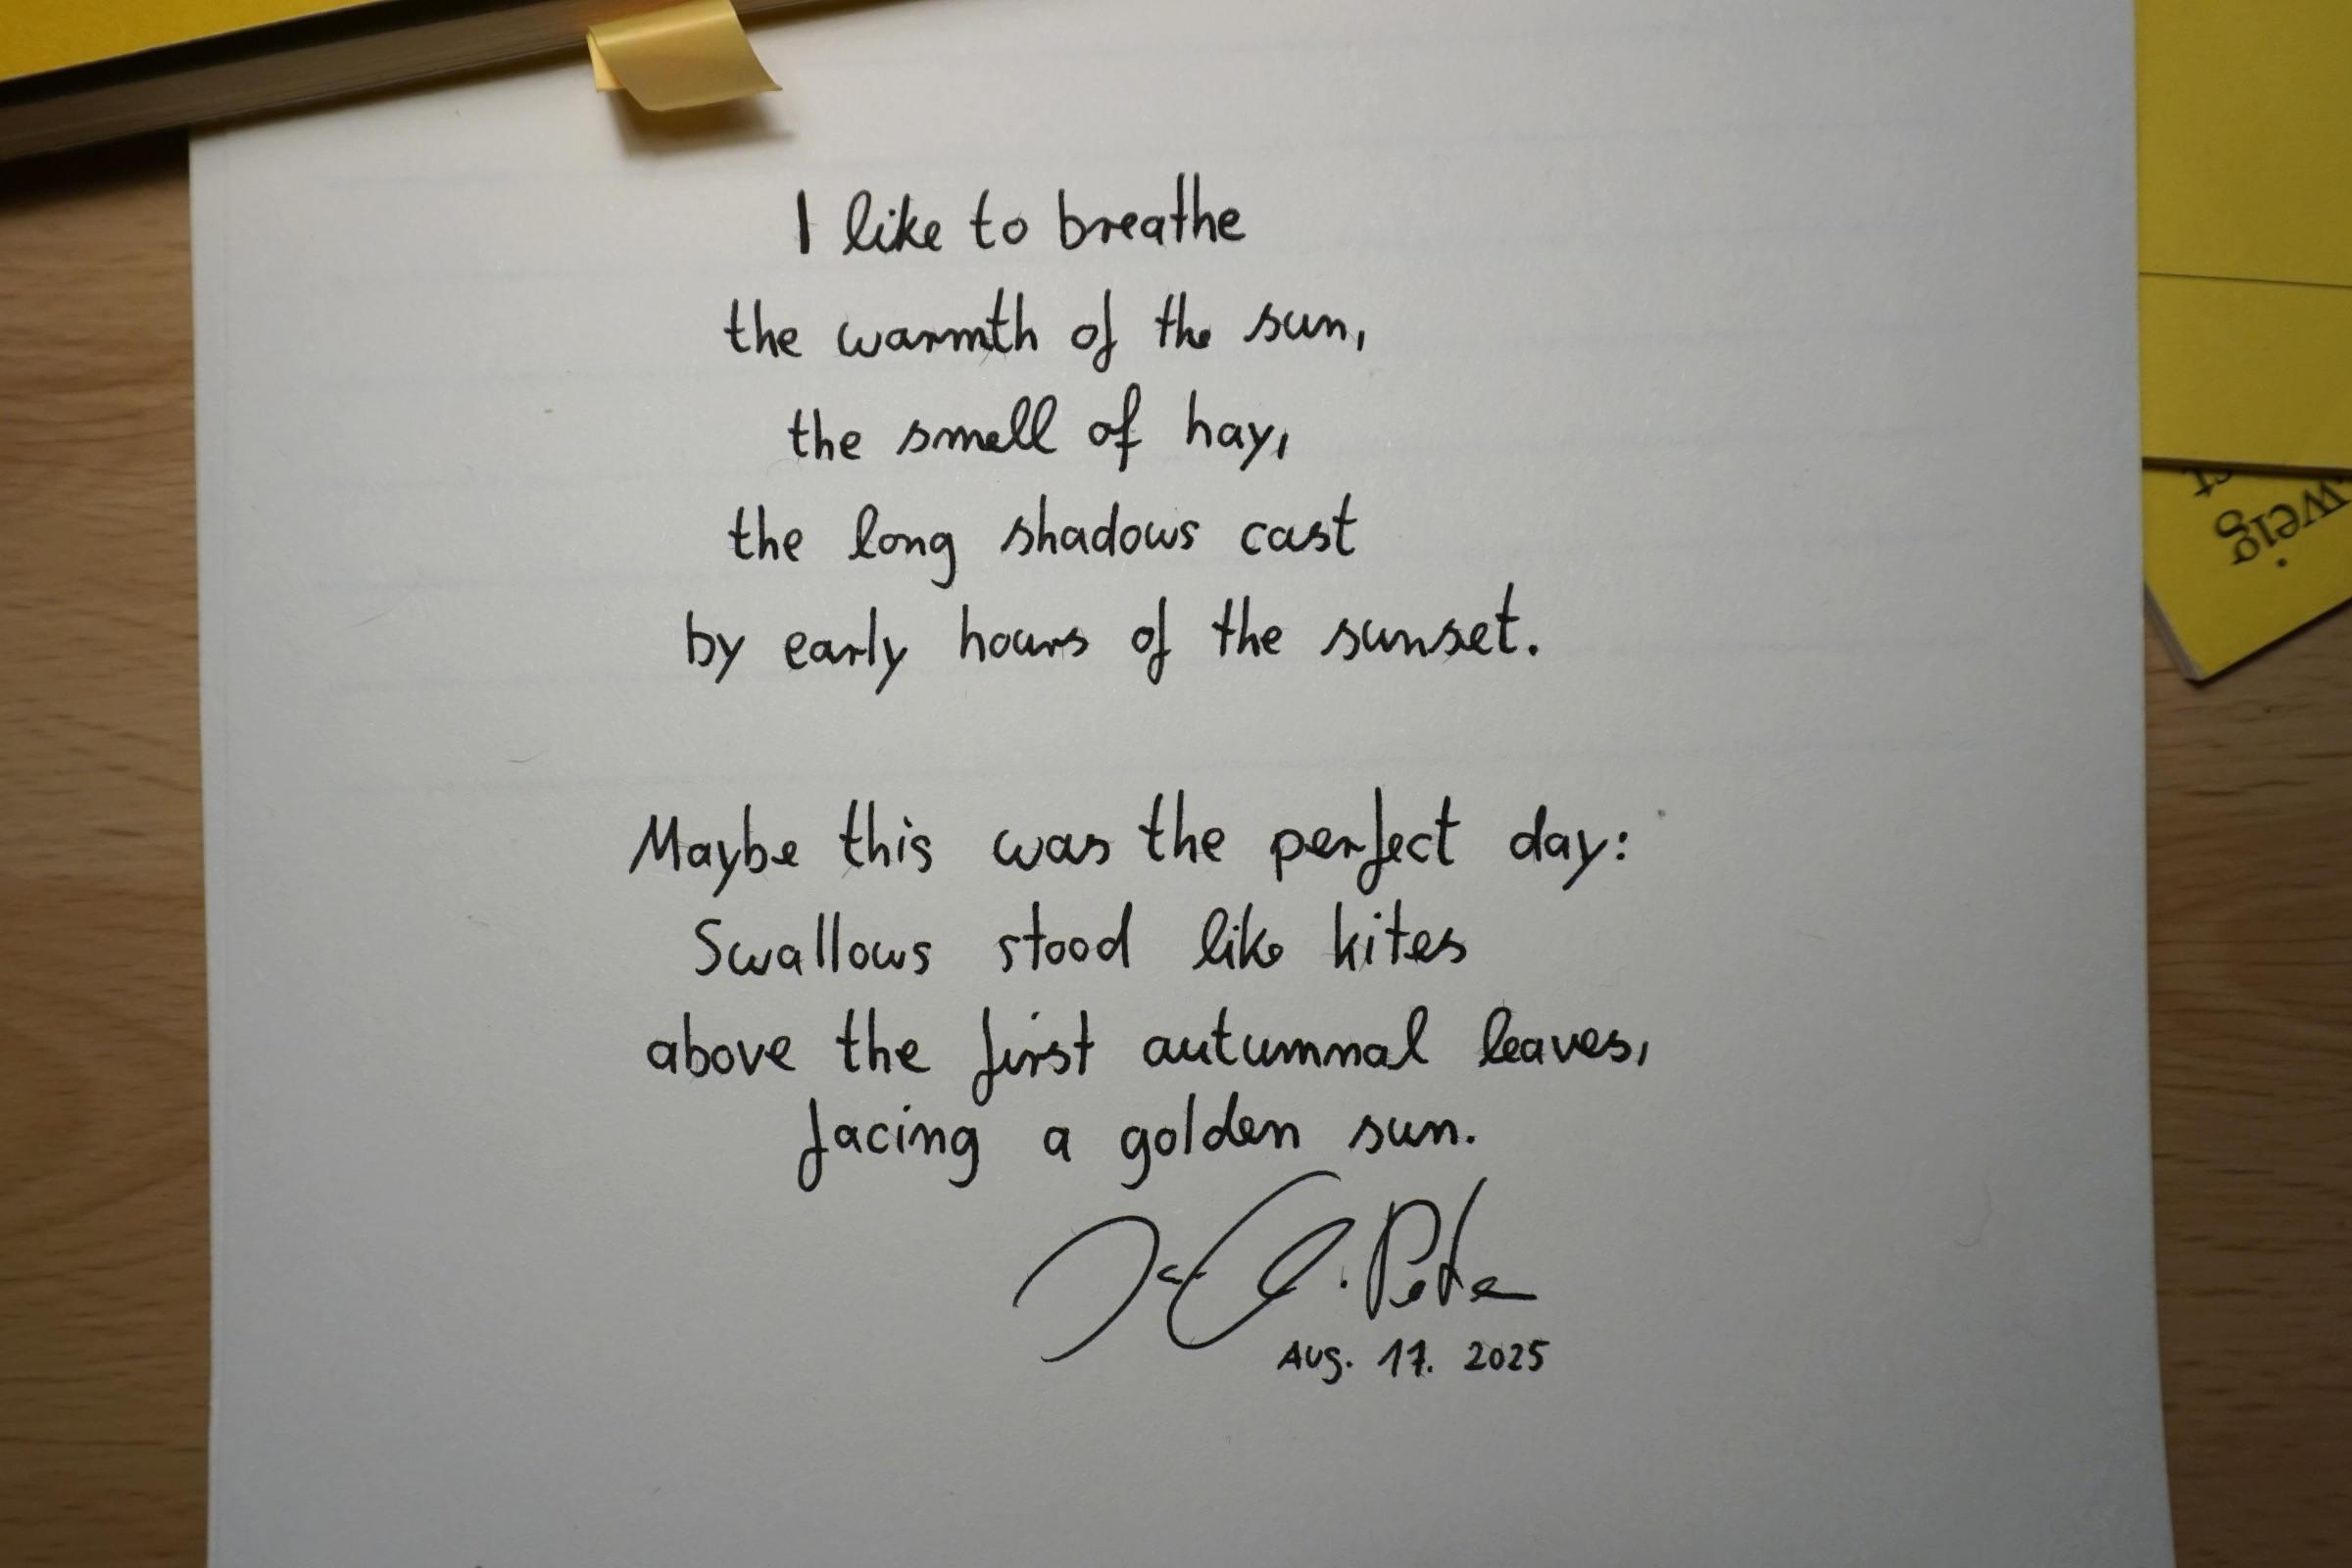 I like to breathe
the warmth of the sun,
the smell of hay,
the long shadows cast
by early hours of the sunset.
Maybe this was the perfect day:
Swallows stood like kites
above the first autumnal leaves,
facing a golden sun.
Aug. 17. 2025